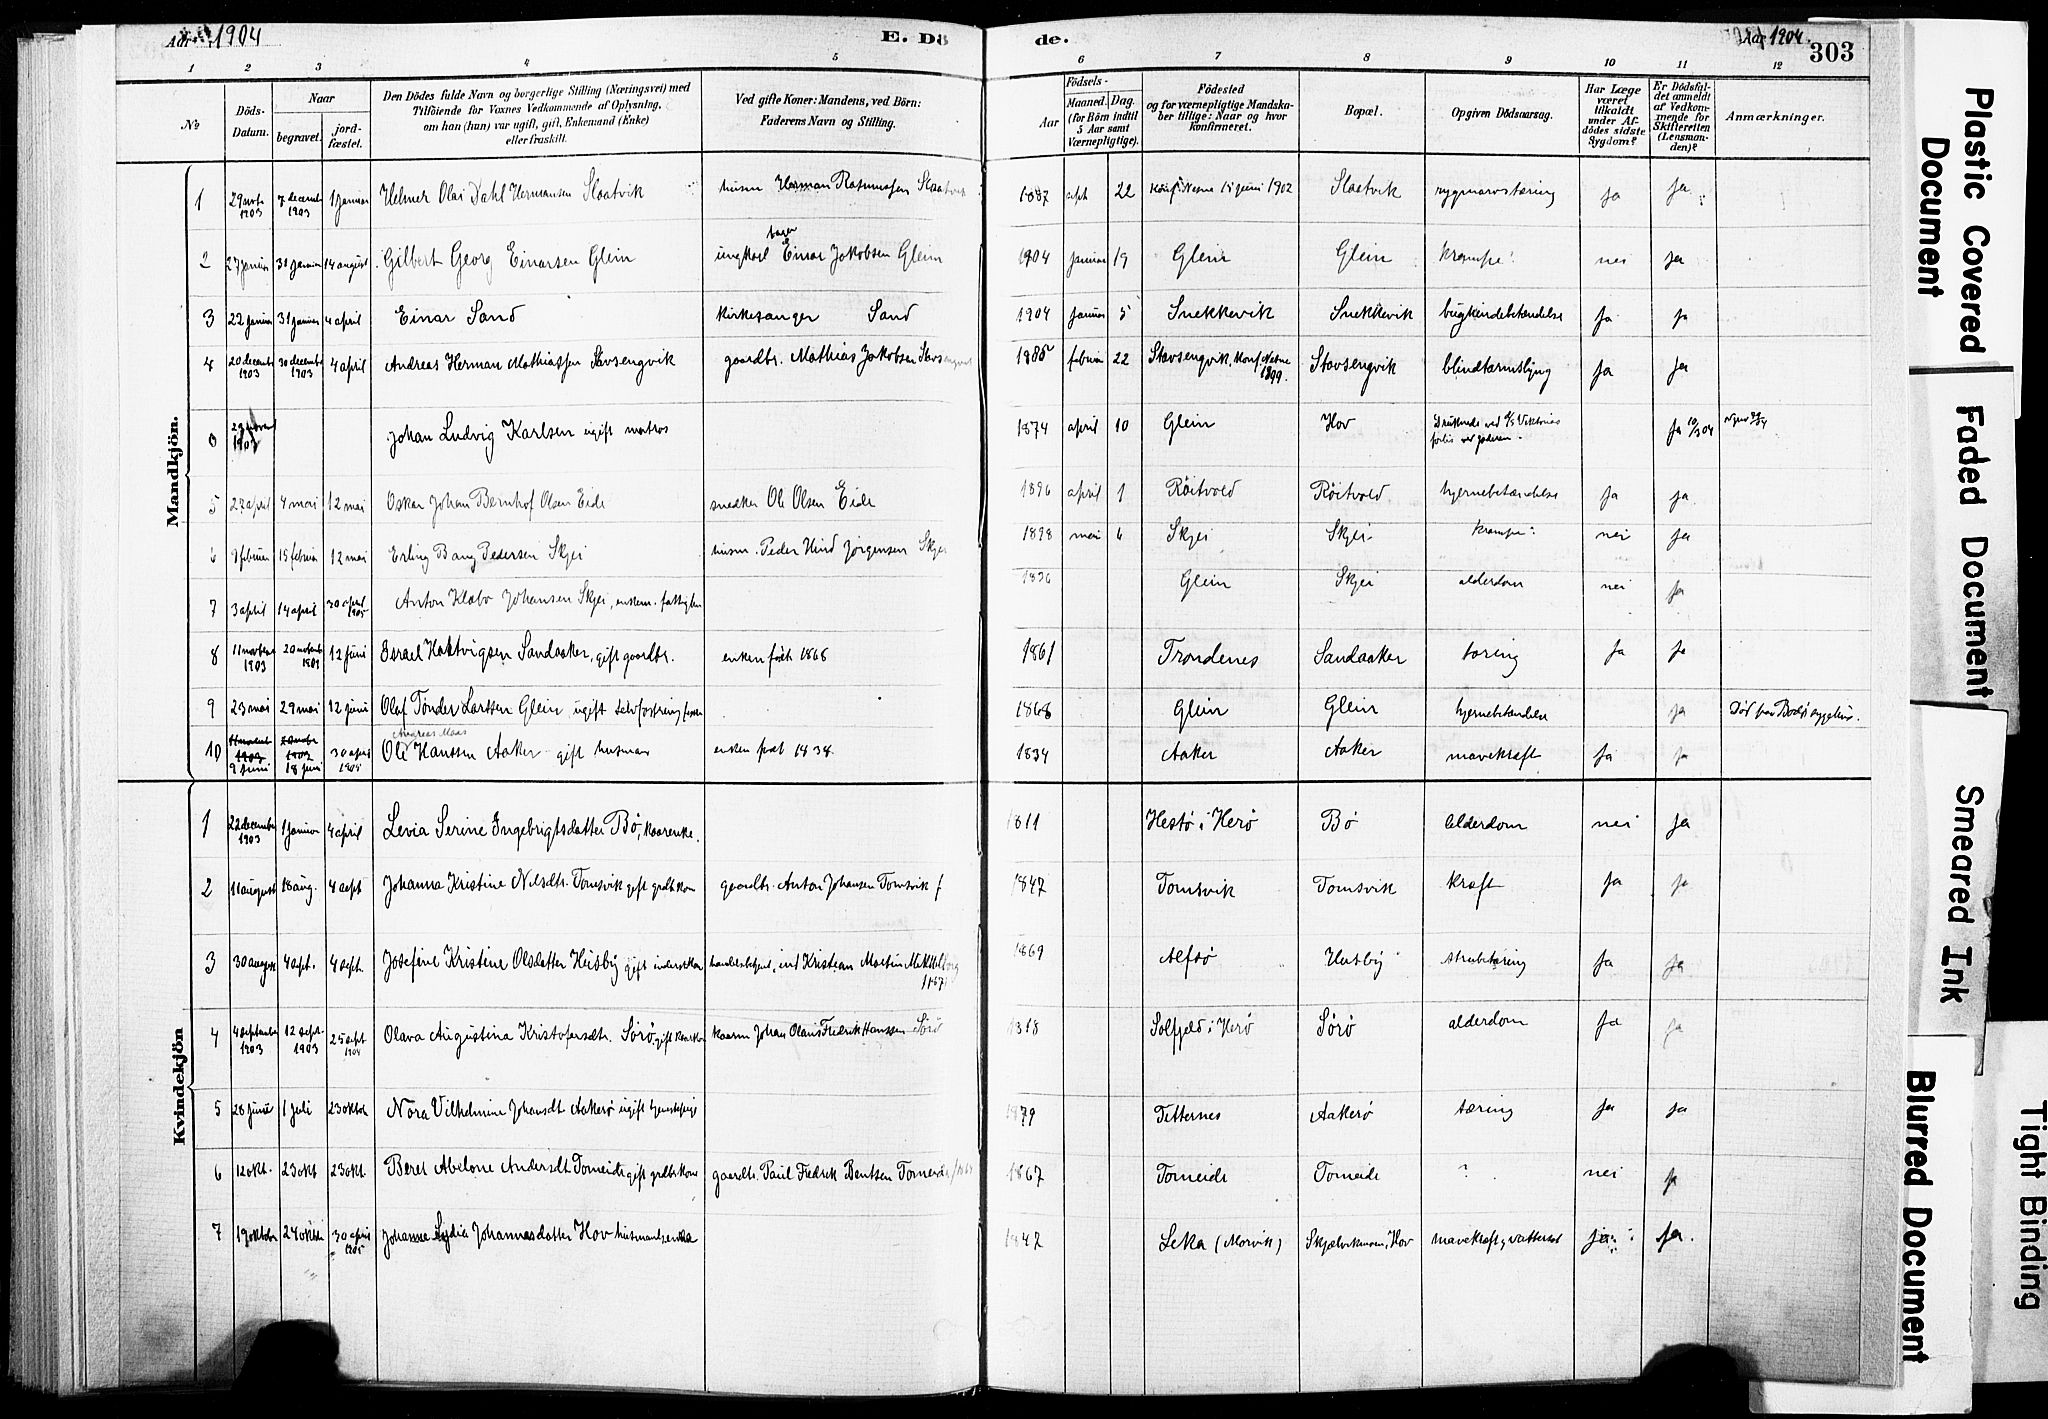 Aar 1904
E. Dö de.
Aar 1904.
303
1 2 3 4 5 6 7 8 9 10 11 12
№
Döds-Datum.
Naar
begravet.
jord-fæstet.
Den Dödes fulde Navn og borgerlige Stilling (Næringsvei) med
Tilföiende for Voxnes Vedkommende af Oplysning,
om han (hun) var ugift, gift, Enkemand (Enke)
eller fraskilt.
Ved gifte Koner: Mandens, ved Börn:
Faderens Navn og Stilling.
Födsels-
Aar
Maaned. Dag.
(for Börn indtil
5 Aar samt
Værnepligtige).
Födested
og for værnepligtige Mandska-
ber tillige: Naar og hvor
konfirmeret.
Bopæl.
Opgiven Dödsaarsag.
Har Læge
været
tilkaldt
under Af-
dödes sidste
Sygdom?
Er Dödsfal-
det anmeldt
af Vedkom-
mende for
Skifteretten
(Lensman-
den)?
Anmærkninger.
Mandkjön.
1 29 novb 1903 7 decemb 1903 1 januar Helmer Olai Dahl Hermansen Slaatvik husm Herman Rasmussen Slaatvik 1887 sept 22 Konf. Nesne 15 juni 1902 Slaatvik rygmarvstæring ja ja
2 27 januar 31 januar 14 august Gilbert Georg Einarsen Glein ungkarl bager Einar Jakobsen Glein 1904 januar 19 Glein Glein krampe nei ja
3 22 januar 31 januar 4 april Einar Sand kirkesanger Sand 1904 januar 5 Snekkevik Snekkevik bughindebetændelse ja ja
4 20 decemb 1903 30 decemb 1903 4 april Andreas Herman Mathiassen Stavsengvik gaardbr. Mathias Jakobsen Stavsengvik 1885 februar 22 Stavsengvik, Konf Nesne 1899. Stavsengvik blindtarmsbyg ja ja
0 Johan Ludvig Karlsen ugift matros 1874 april 10 Glein Hov Druknede ved D/S Viktorias forlis ved Jæderen. ja 10/3 04
5 27 april 4 mai 12 mai Oskar Johan Bernhof Olsen Eide snedker Ole Olsen Eide 1896 april 1 Röitvold Röitvold hjernebetændelse ja ja
6 9 februar 15 februar 12 mai Erling Bang Pedersen Skjei husm. Peder Hind Jørgensen Skjei 1898 mai 6 Skjei Skjei krampe nei ja
7 3 april 14 april 30 april 1905 Anton Klæbo Johansen Skjei, enkem. fattiglem 1826 Glein Skjei alderdom nei ja
8 11 novbr 1903 20 novemb 1903 12 juni Israel Haktvigsen Sandaaker, gift gaardbr. enken født 1866 1861 Trondenes Sandaaker tæring ja ja
9 23 mai 29 mai 12 juni Olaf Tønder Larssen Glein, ugift 1868 Glein Glein hjernebetændelse ja Død paa Bodø sygehus.
10 9 juni 18 juni 30 april 1905 Ole Andreas Maas Hanssen Aaker gift husman enken født 1838. 1834 Aaker Aaker mavekræft ja ja
Kvindekjön
1 22 decembr 1903 1 januar 4 april Levia Serine Ingebrigtsdatter Bø, kaarenke. 1811 Hestø i Herø Bø alderdom nei ja
2 11 august 18 aug. 4 sept Johanna Kristine Nilsdtr. Tomsvik gift grdbr.kone gaardbr. Anton Johansen Tomsvik f 1847 Tomsvik Tomsvik kræft ja ja
3 30 august 4 sept. 4 sept. Josefine Kristine Olsdatter Husby gift Kristian Martin 1869 Alfsø Husby strubetæring ja ja
4 4 septembr 1903 12 sept. 1903 25 sept 1904 Olava Augustina Kristofersdtr. Sörö, gift kaarkone kaarm Johan Olaus Fredrik Hanssen Sörö 1818 Solfjeld i Herø Sørø alderdom ja ja
5 28 juni 1 juli 23 oktor Nora Vilhelmine Johansdt Aakerø ugift tjenestepige 1879 Titternes Aakerø tæring ja ja
6 12 okt. 23 okt 23 okt. Beret Abelone Andersdt Torneide gift grdbr.kone gaardbr. Paul Fredrik Bentsen Torneide 1867 Torneide Torneide ? nei ja
7 19 oktobr 24 oktbr 30 april 1905 Johanne Lydia Johannesdatter Hov husmandsenke 1847 Leka (Morvik) Hov mavekræft og vattersot ja ja.
Plastic Covered Document
Faded Document
Smeared Ink
Blurred Document
Tight Binding